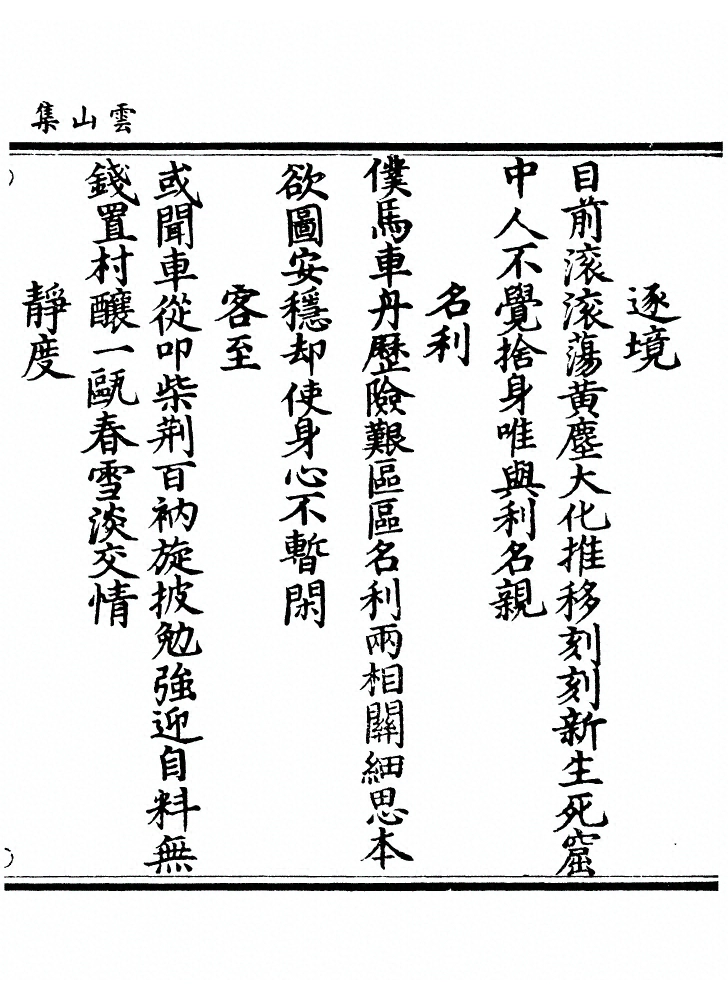 雲山集
逐境
目前滚滚蕩黄塵大化推移刻刻新生死窟
中人不覺捨身唯與利名親
名利
僕馬車舟歷險艱區區名利兩相關細思本
欲圖安穩却使身心不暫閑
客至
或聞車從叩柴荆百衲旋披勉強迎自料無
錢置村釀一甌春雪淡交情
靜度